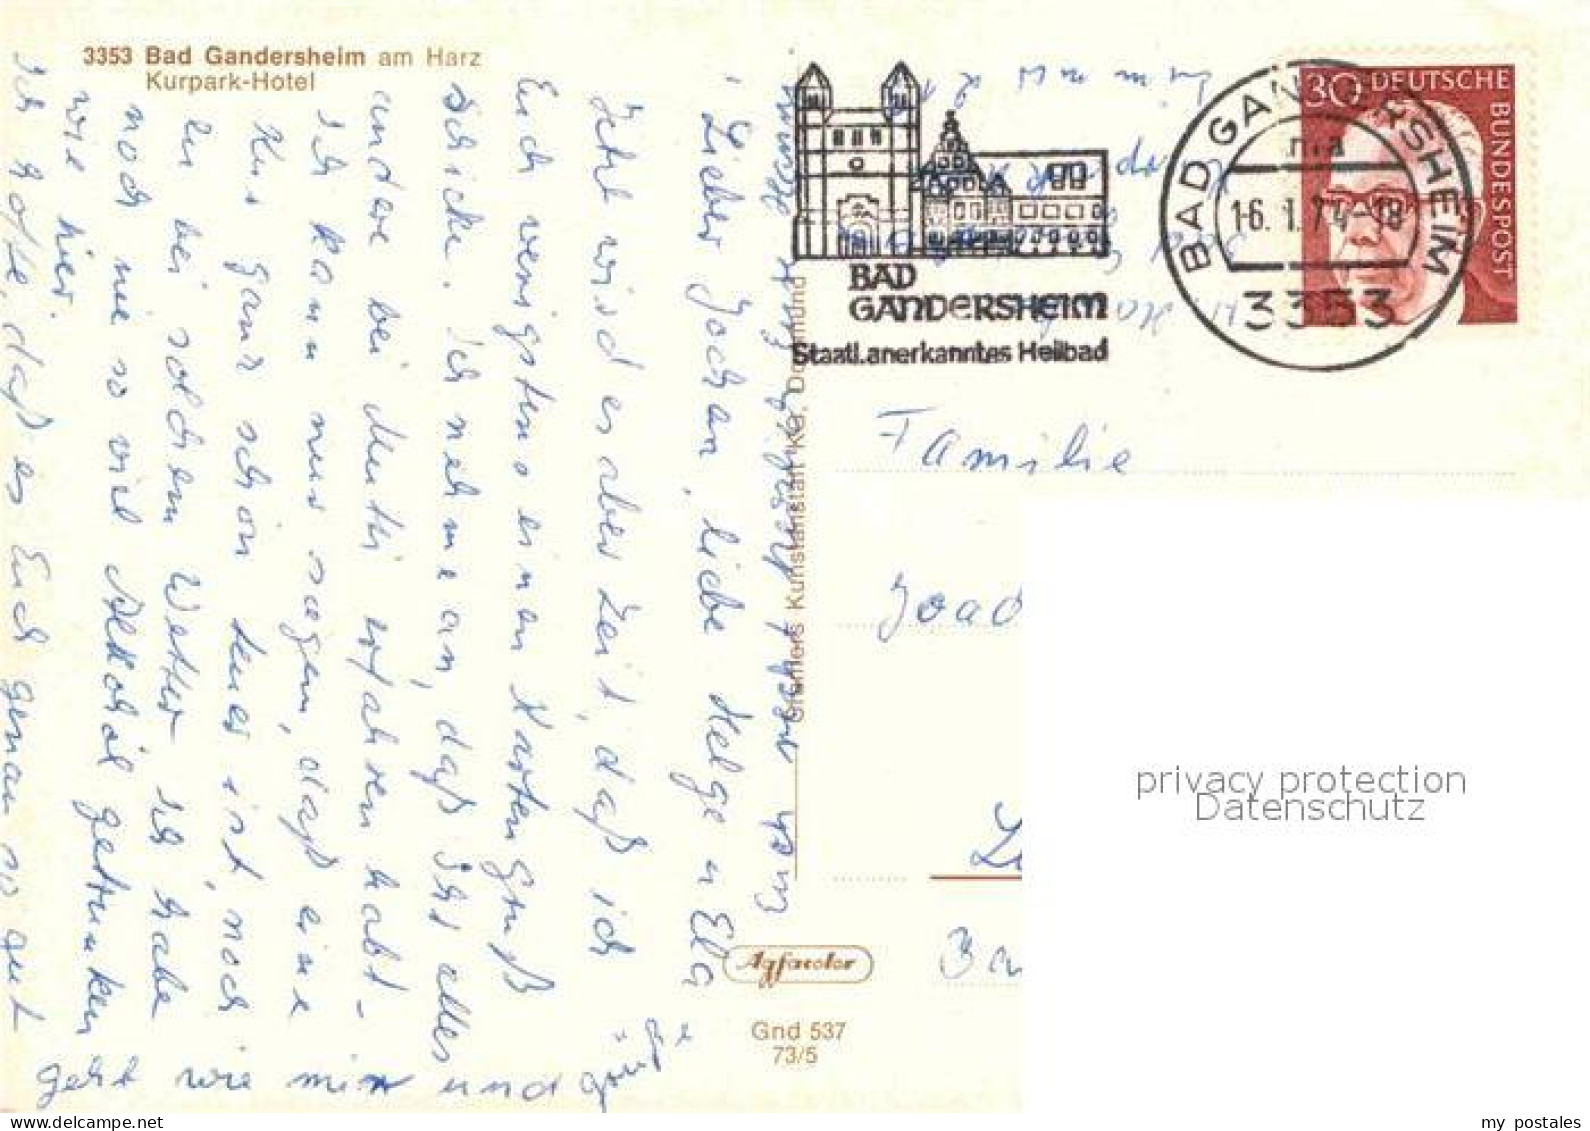 3353 Bad Gandersheim am Harz
Kurpark-Hotel
! Lieber Jochan, liebe Helge u Ela
Jetzt wird es aber Zeit, daß ich
Euch wenigstens einen Kartengruß
schicke. Ich nehme an, daß Ihr alles
andere bei Mutti erfahren habt-
Ich kann nur sagen, daß eine
Kur ganz schön teuer ist, noch
bei solchem Wetter Ich habe
noch nie so viel Alkohol getrunken
wie hier.
Ich hoffe, daß es Euch genau so gut
geht wie mir und grüße
Euch recht herzlich
BAD
GANDERSHEIM
Staatl. anerkanntes Heilbad
BAD GANDERSHEIM
16.1.74-18
3353
30 DEUTSCHE
BUNDESPOST
Familie
Joac
Ba
Kunstanstalt KG, Dortmund
Agfacolor
Gnd 537
73/5
privacy protection
Datenschutz
my postales